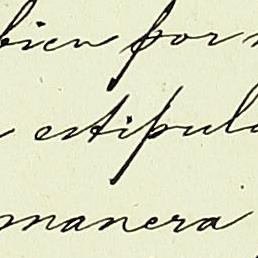 bien por
estipula
manera